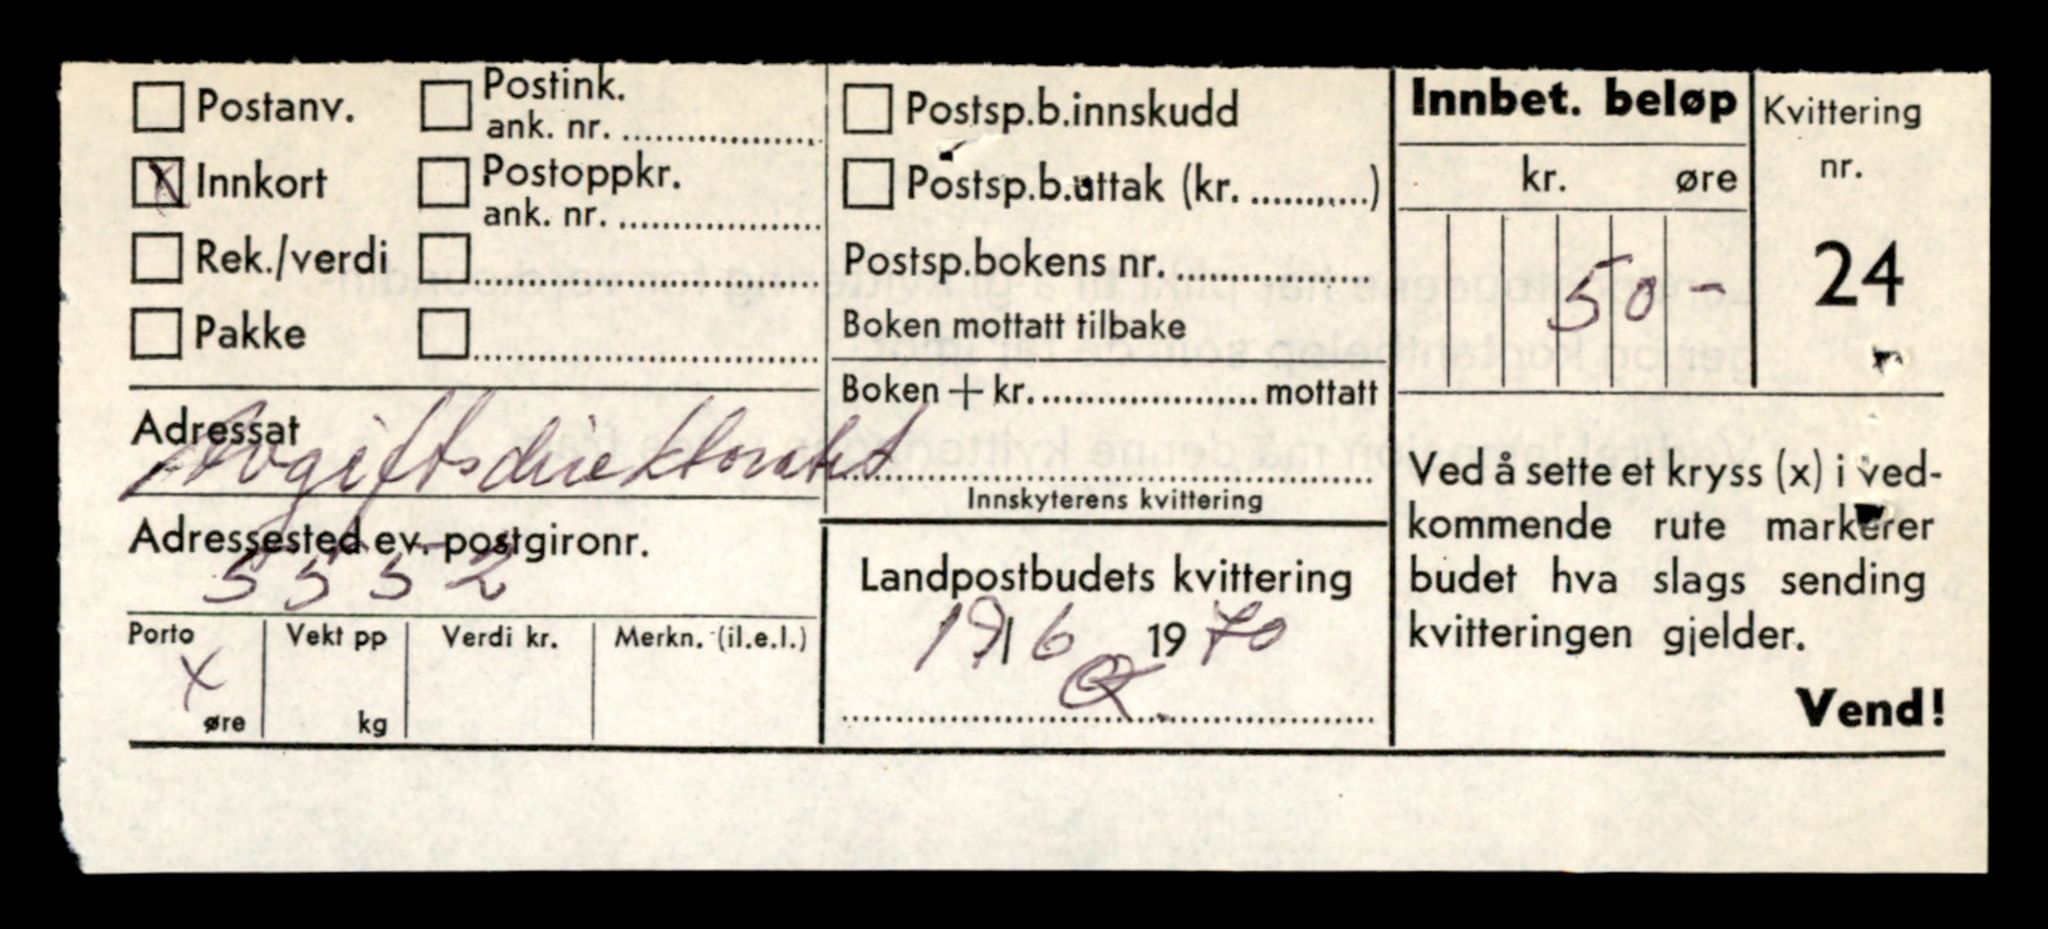 Postanv.
Postink.
ank. nr.
X Innkort
Postoppkr.
ank. nr.
Rek./verdi
Pakke
Adressat
Avgiftsdirektoratet
Adressested ev. postgironr.
5552
Porto
X
øre
Vekt pp
kg
Verdi kr.
Merkn. (il.e.l.)
Postsp.b.innskudd
Postsp.b.uttak (kr. ...........)
Postsp.bokens nr.
Boken mottatt tilbake
Boken + kr. .................... mottatt
Innskyterens kvittering
Landpostbudets kvittering
19/6 1970
Innbet. beløp
kr. øre
50 -
Kvittering
nr.
24
Ved å sette et kryss (x) i ved-
kommende rute markerer
budet hva slags sending
kvitteringen gjelder.
Vend!